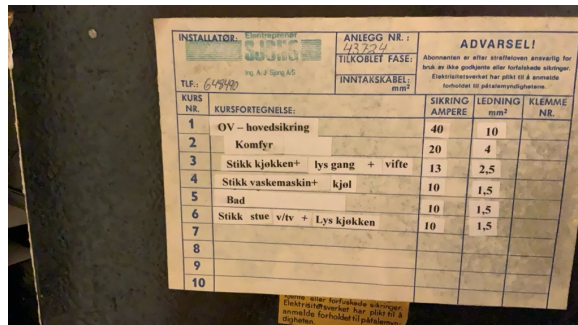 INSTALLATØR:
Elentreprenør
SJONG
Ing. A. J. Sjong A/S
TLF.: 645490
ANLEGG NR.:
43724
TILKOBLET FASE:
INNTAKSKABEL:
mm²
ADVARSEL!
Abonnenten er efter straffeloven ansvarlig for
bruk av ikke godkjente eller forfalskede sikringer.
Elektrisitetsverket har plikt til å anmelde
forholdet til påtalemyndighetene.
KURS NR. KURSFORTEGNELSE: SIKRING AMPERE LEDNING mm² KLEMME NR.
1 OV – hovedsikring 40 10
2 Komfyr 20 4
3 Stikk kjøkken+ lys gang + vifte 13 2,5
4 Stikk vaskemaskin+ kjøl 10 1,5
5 Bad 10 1,5
6 Stikk stue v/tv + Lys kjøkken 10 1,5
7
8
9
10
eller forfuskede sikringer.
Elektrisitetsverket har plikt til å
anmelde forholdet til påtalemyn-
digheten.